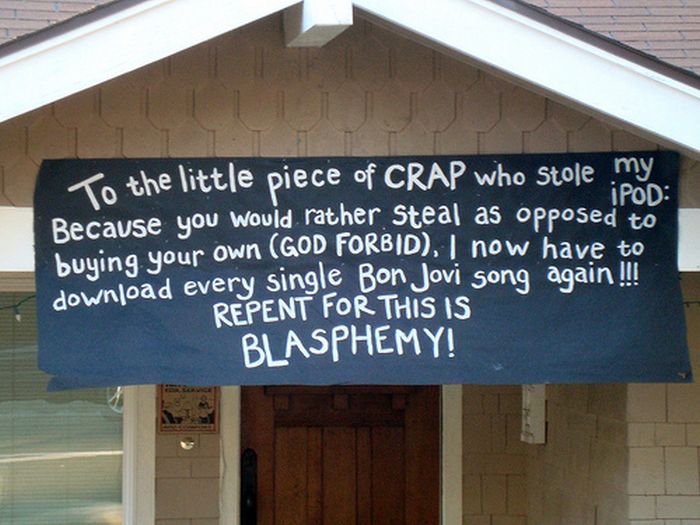 To the little piece of CRAP who stole my iPOD:
Because you would rather steal as opposed to
buying your own (GOD FORBID), I now have to
download every single Bon Jovi song again!!!
REPENT FOR THIS IS
BLASPHEMY!